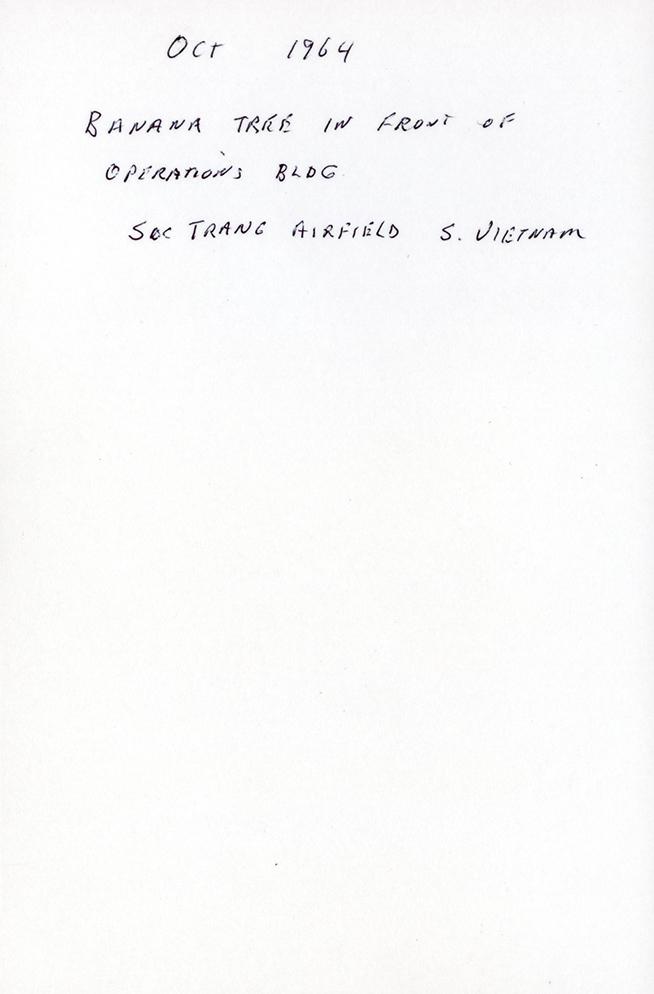 Oct 1964
BANANA TREE IN FRONT OF
OPERATIONS BLDG.
SOC TRANG AIRFIELD S. VIETNAM